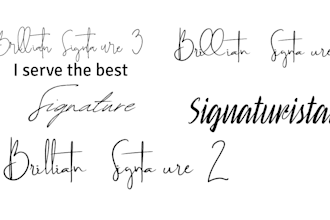 Brilliatn Signta ure 3
Brilliatn Signta ure
I serve the best
Signature
Signaturista
Brilliatn Signta ure 2